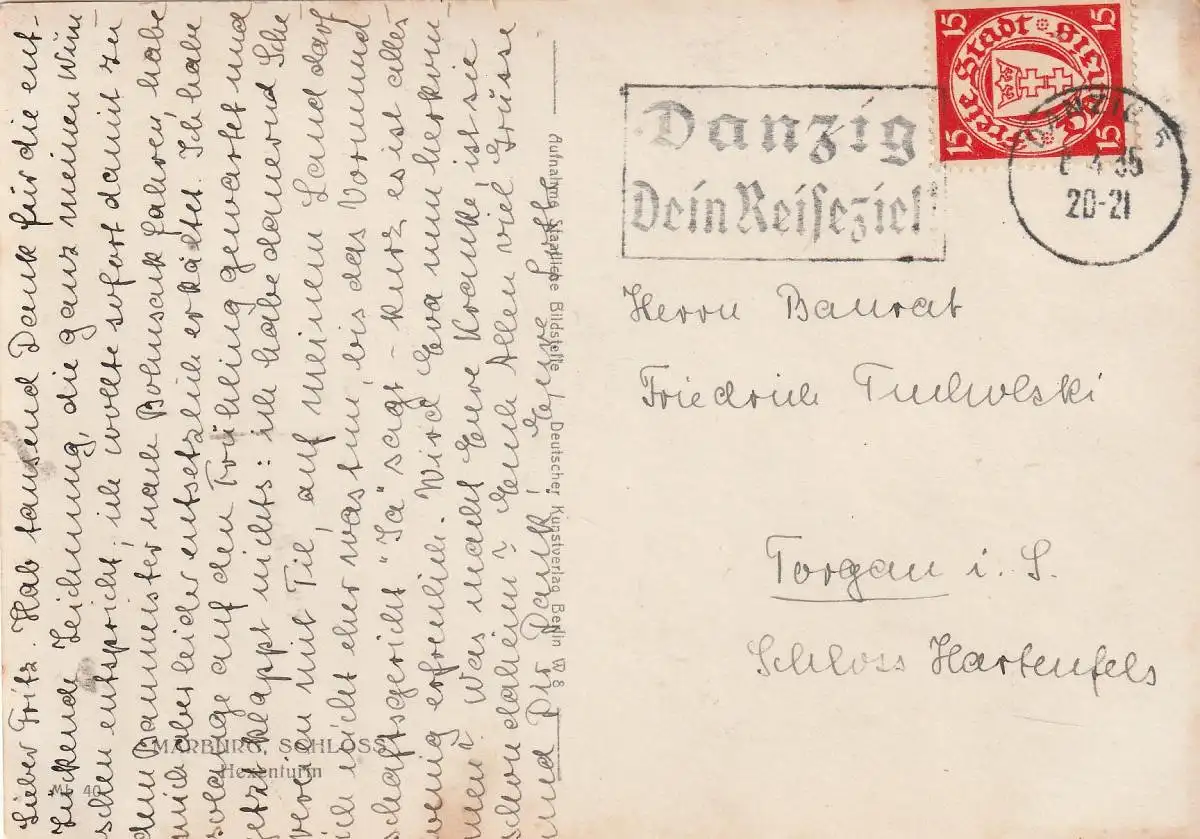 Lieber Fritz. Hab tausend Dank für die ent-
zückende Zeichnung, die ganz meinen Wün
schen entspricht; ich wollte sofort damit zu
dem Baumeister nach Bohnsack fahren, habe
mich aber leider entsetzlich erkältet. Ich habe
solange auf den Frühling gewartet und
jetzt klappt nichts: ich habe dauernd Sche
rereien mit Til, auf meinem Land darf
ich nicht eher was tun, bis das Vormund
schaftsgericht "Ja" sagt - kurz es ist alles
wenig erfreulich. Wird Eva nun herkom
men? Was macht Eure Kranke, ist sie
schon daheim? Euch Allen viel Grüsse
und Dir Dank! Eure
MARBURG, SCHLOSS
Hexenturm
Mb 40
Aufnahme Staatliche Bildstelle Deutscher Kunstverlag Berlin W 8
15 15
Freie Stadt Danzig
15 15
Danzig
Dein Reiseziel!
DANZIG 5
4 35
20-21
Herrn Baurat
Friedrich Tucholski
Torgau i. S.
Schloss Hartenfels